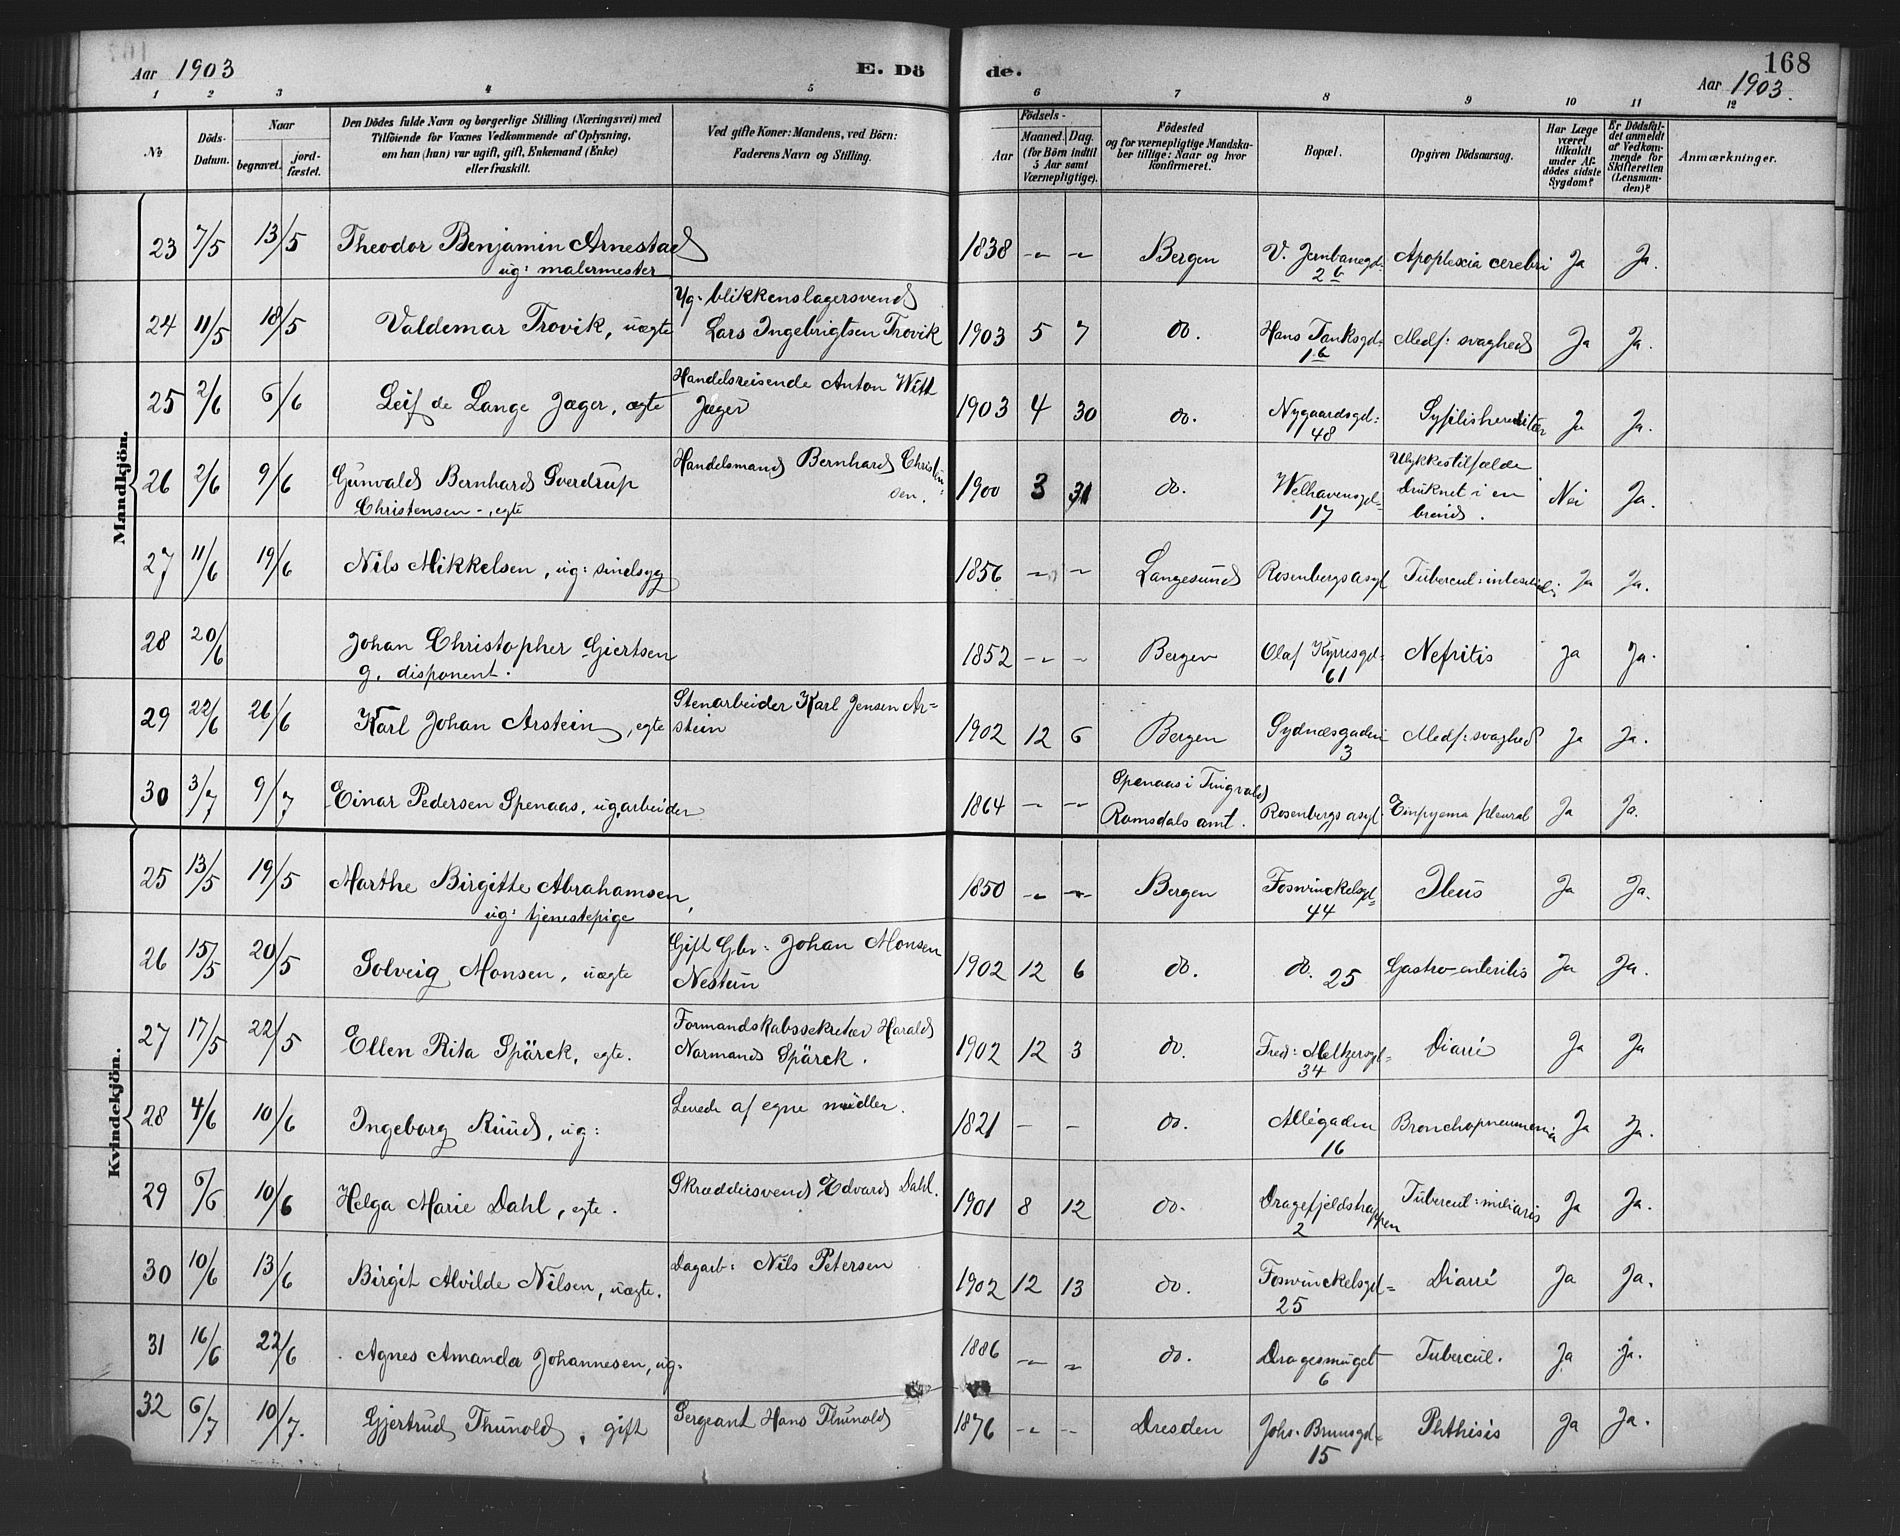 168
Aar 1903 E. Dö de. Aar 1903.
1 2 3 4 5 6 7 8 9 10 11 12
No
Döds-Datum.
Naar
begravet. jordfæstet.
Den Dödes fulde Navn og borgerlige Stilling (Næringsvei) med
Tilföiende for Voxnes Vedkommende af Oplysning,
om han (hun) var ugift, gift, Enkemand (Enke)
eller fraskilt.
Ved gifte Koner: Mandens, ved Börn:
Faderens Navn og Stilling.
Födsels-
Aar Maaned. Dag.
(for Börn indtil
5 Aar samt
Værnepligtige).
Födested
og for værnepligtige Mandskaber tillige: Naar og hvor
konfirmeret.
Bopæl.
Opgiven Dödsaarsag.
Har Læge været tilkaldt under Afdödes sidste Sygdom?
Er Dödsfaldet anmeldt af Vedkommende for Skifteretten (Lensmanden)?
Anmærkninger.
Mandkjön.
23 7/5 13/5 Theodor Benjamin Arnestad 1838 -- -- Bergen V. Jernbanegd: Apoplexia cerebri Ja Ja.
ug: malermester 2b
24 11/5 18/5 Valdemar Trovik, uægte Ug: blikkenslagersvend
Lars Ingebrigtsen Trovik 1903 5 7 do. Hans Tanksgd: Medf: svaghed Ja Ja.
1b
25 2/6 6/6 Leif de Lange Jæger, ægte Handelsreisende Anton Witt
Jæger 1903 4 30 do. Nygaardsgd: Syfilis hereditær Ja Ja.
48
26 2/6 9/6 Gunvald Bernhard Sverdrup Handelsmand Bernhard Christen-
Christensen -, egte sen. 1900 3 31 do. Welhavensgd= Ulykkestilfælde
17 Druknet i en
brønd. Nei Ja.
27 11/6 19/6 Nils Mikkelsen, ug: sindsyg 1856 -- -- Langesund Rosenbergs asyl Tubercul: intestinalis Ja Ja.
28 20/6 Johan Christopher Giertsen 1852 -- -- Bergen Olaf Kyrresgd= Nefritis Ja Ja.
g. disponent. 61
29 22/6 26/6 Karl Johan Arstein, egte Stenarbeider Karl Jensen Ar=
stein 1902 12 6 Bergen Sydnæsgaden Medf: svaghed Ja Ja.
3
30 3/7 9/7 Einar Pedersen Spenaas, ug. arbeider 1864 -- -- Spenaas i Tingvold
Romsdals amt. Rosenbergs asyl. Empyema pleural Ja Ja.
Kvindekjön.
25 13/5 19/5 Marthe Birgitte Abrahamsen, 1850 -- -- Bergen Foswinckelsgd= Ileus Ja Ja.
ug: tjenestepige 44
26 15/5 20/5 Solveig Monsen, uægte Gift Gbr: Johan Monsen
Nestun 1902 12 6 do. do. 25 Gastro-enteritis Ja Ja.
27 17/5 22/5 Ellen Rita Spärck, egte. Formandskabssekretær Harald
Normand Spärck. 1902 12 3 do. Fred: Meltzersgd= Diarré Ja Ja
34
28 4/6 10/6 Ingeborg Ruud, ug: Levede af egne midler. 1821 - - do. Allégaden Bronchopneumonia Ja Ja.
16
29 5/6 10/6 Helga Marie Dahl, egte. Skræddersvend Edvard Dahl. 1901 8 12 do. Dragefjeldstrappen Tubercul: miliaris Ja Ja.
2
30 10/6 13/6 Birgit Alvilde Nilsen, uægte. Dagarb: Nils Petersen 1902 12 13 do. Foswinckelsgd= Diarré Ja Ja.
25
31 16/6 22/6 Agnes Amanda Johannesen, ug. 1886 -- -- do. Dragesmuget Tubercul. Ja ja.
6
32 6/7 10/7. Gjertrud Thunold, gift Sergeant Hans Thunold 1876 -- -- Dresden Johs. Brunsgd= Phthisis Ja Ja.
15